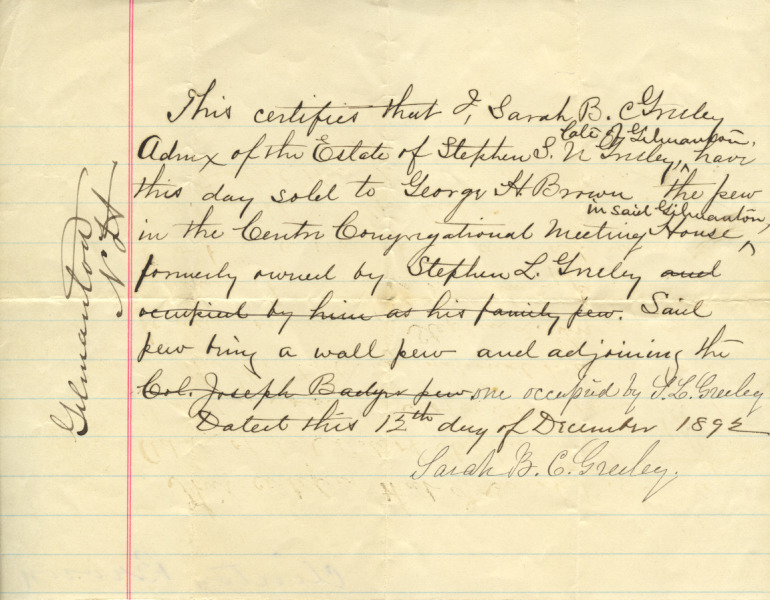 This certifies that I, Sarah B. C Greeley
late of Gilmanton,
Admx of the Estate of Stephen S. N Greeley, have
this day sold to George H Brown the pew
in said Gilmanton,
in the Centre Congregational Meeting House,
formerly owned by Stephen L. Greeley and
occupied by him as his family pew. Said
pew being a wall pew and adjoining the
Col. Joseph Badger pew one occupied by S. L. Greeley
Dated this 12th day of December 1892
Sarah B. C. Greeley.
Gilmanton
N H